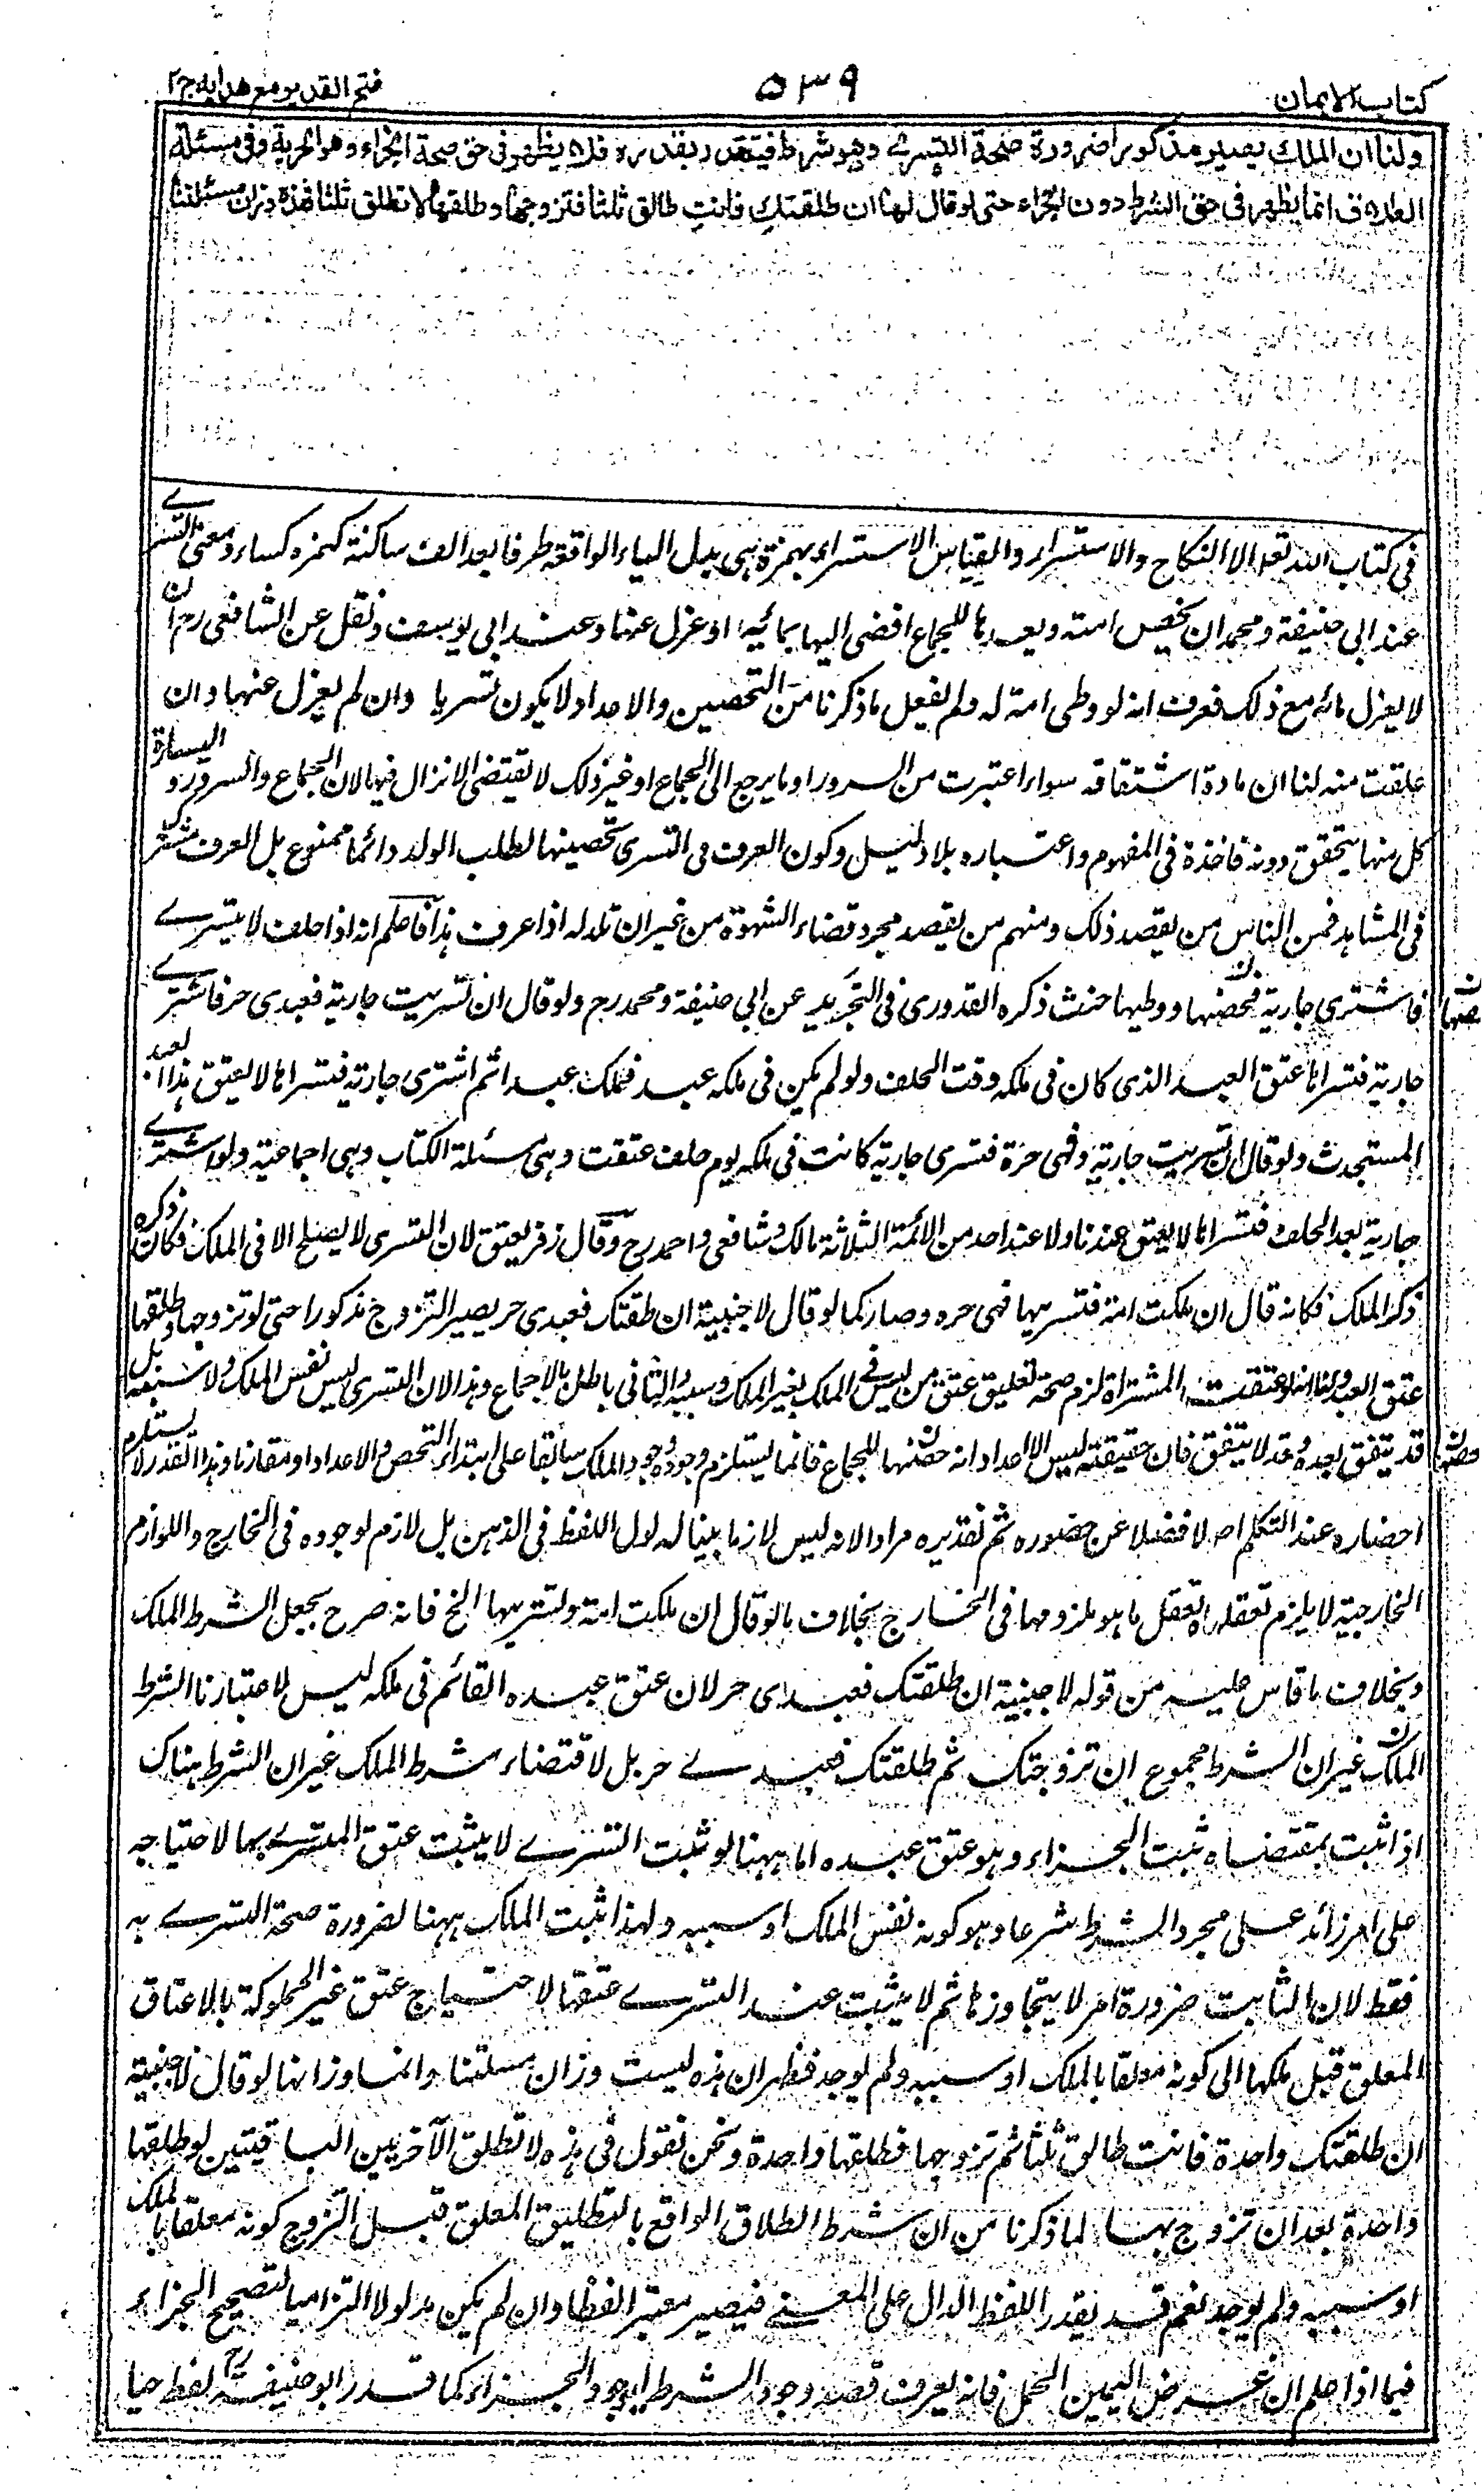 كتاب الايمان
٥٣٩
فتح القدير مع هدايه ج ٢
ولنا ان الملك يصير مذكورا ضرورة صحة التسرے وهو شرط فيتقدر بقدره فلا يظهر فى حق صحة الجزاء وهو الحرية وفى مسئلة
الطلاق انما يظهر فى حق الشرط دون الجزاء حتى لو قال لها ان طلقتك فانت طالق ثلثا فتزوجها وطلقها لا تطلق ثلثا فهذه وزان مسئلتنا
فى كتاب الله تعا الا النكاح والاستسرار والقياس الاستسراء بهمزة هى بدل الياء الواقعة طرفا بعد الف ساكنة كهمزه كساء ومعنى التسرے
عند ابى حنيفة ومحمد ان يحصن امته ويعدها للجماع افضى اليها بمائه او عزل عنها وعند ابى يوسف ونقل عن الشافعى رح ان
لا يعزل مائه مع ذلك فعرف انه لو وطى امة له ولم يفعل ما ذكرنا من التحصين والاعداد لا يكون تسريا وان لم يعزل عنها وان
علقت منه لنا ان مادة اشتقاقه سواء اعتبرت من السرور او ما يرجع الى الجماع او غير ذلك لا تقتضى الانزال فيها لان الجماع والسرور و
كل منها يتحقق دونه فاخذه فى المفهوم واعتباره بلا دليل وكون العرف فى التسرى تحصينها لطلب الولد دائما ممنوع بل العرف مشترك
فى المشاهد فمن الناس من يقصد ذلك ومنهم من يقصد مجرد قضاء الشهوة من غير ان تلد له اذا عرف هذا فاعلم انه اذا حلف لا يتسرے
فاشترى جارية فحصنها ووطيها حنث ذكره القدورى فى التجريد عن ابى حنيفة ومحمد رح ولو قال ان تسريت جارية فعبدى حر فاشترے
جارية فتسراها عتق العبد الذى كان فى ملكه وقت الحلف ولو لم يكن فى ملكه عبد فملك عبدا ثم اشترى جارية فتسراها لا يعتق هذا العبد
المستحدث ولو قال ان تسريت جارية فهى حرة فتسرى جارية كانت فى ملكه يوم حلف عتقت وهى مسئلة الكتاب وهى اجماعية ولو اشترے
جارية بعد الحلف فتسراها لا يعتق عندنا ولا عند احد من الائمة الثلاثة مالك وشافعى واحمد رح وقال زفر يعتق لان التسرى لا يصلح الا فى الملك فكان ذكره
ذكر الملك فكانه قال ان ملكت امة فتسريها فهى حره وصار كما لو قال لاجنبية ان طلقتك فعبدى حر يصير التزوج مذكورا حتى لو تزوجها وطلقها
عتق العبد ولنا انه لو عتقت المشتراة لزم صحة تعليق عتق من ليس فى الملك بغير الملك وسببه والثانى باطل بالاجماع وهذا لان التسرى ليس نفس الملك ولا سببه بل
قد يتفق بعده وقد لا يتفق فان حقيقته ليس الا اعداد امة حصنها للجماع فانما يستلزم وجوده وجود الملك سابقا على ابتداء التحصن والاعداد او مقارنا وهذا القدر لا يستلزم
احضاره عند التكلم اصلا فضلا عن حضوره ثم تقديره مرادا لانه ليس لازما بينا لمدلول اللفظ فى الذهن بل لازم لوجوده فى الخارج واللوازم
الخارجية لا يلزم تعقلها تعقل ما هو ملزومها فى الخارج بخلاف ما لو قال ان ملكت امة وتسريها الخ فانه صرح بجعل الشرط الملك
وبخلاف ما قاس عليه من قوله لاجنبية ان طلقتك فعبدى حر لان عتق عبده القائم فى ملكه ليس لاعتبارنا الشرط
الملك غير ان الشرط مجموع ان تزوجتك ثم طلقتك فعبدے حر بل لاقتضاء شرط الملك غير ان الشرط هناك
اذا ثبت بمقتضاه ثبت الجزاء وهو عتق عبده اما ههنا لو ثبت التسرے لا يثبت عتق المتسرے بها لاحتياجه
على امر زائد على مجرد الشرط شرعا وهو كونه نفس الملك او سببه ولهذا ثبت الملك ههنا لضرورة صحة التسرے به
فقط لان الثابت ضرورة امر لا يتجاوزها ثم لا يثبت عند التسرے عتقها لاحتياج عتق غير المملوكة بالاعتاق
المعلق قبل ملكها الى كونه معلقا بالملك او سببه ولم يوجد فظهر ان هذه ليست وزان مسئلتنا وانما وزانها لو قال لاجنبية
ان طلقتك واحدة فانت طالق ثلثا ثم تزوجها فطلقها واحدة ونحن نقول فى هذه لا تطلق الآخريين الباقيتين لو طلقها
واحدة بعد ان تزوج بها لما ذكرنا من ان شرط الطلاق الواقع بالتطليق المعلق قبل التزوج كونه معلقا بالملك
او سببه ولم يوجد نعم قد يقدر اللفظ الدال على المعنے فيصير معتبر الفظا وان لم يكن مدلولا التزاميا لتصحيح الجزاء
فيما اذا علم ان غرض اليمين الحمل فانه يعرف قصد وجود الشرط لوجود الجزاء كما قدر ابو حنيفة رح لفظ حيا